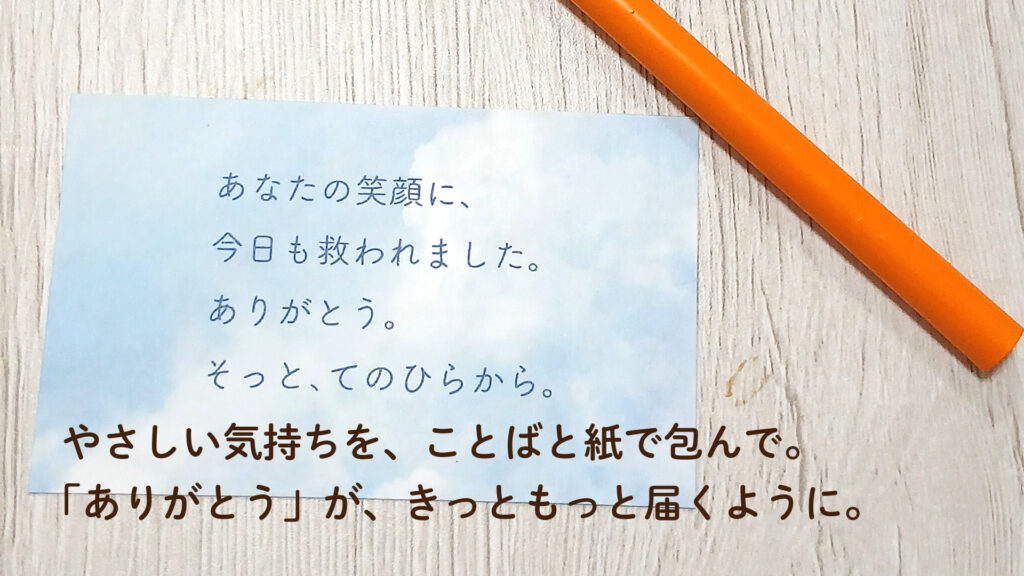 あなたの笑顔に、
今日も救われました。
ありがとう。
そっと、てのひらから。
やさしい気持ちを、ことばと紙で包んで。
「ありがとう」が、きっともっと届くように。